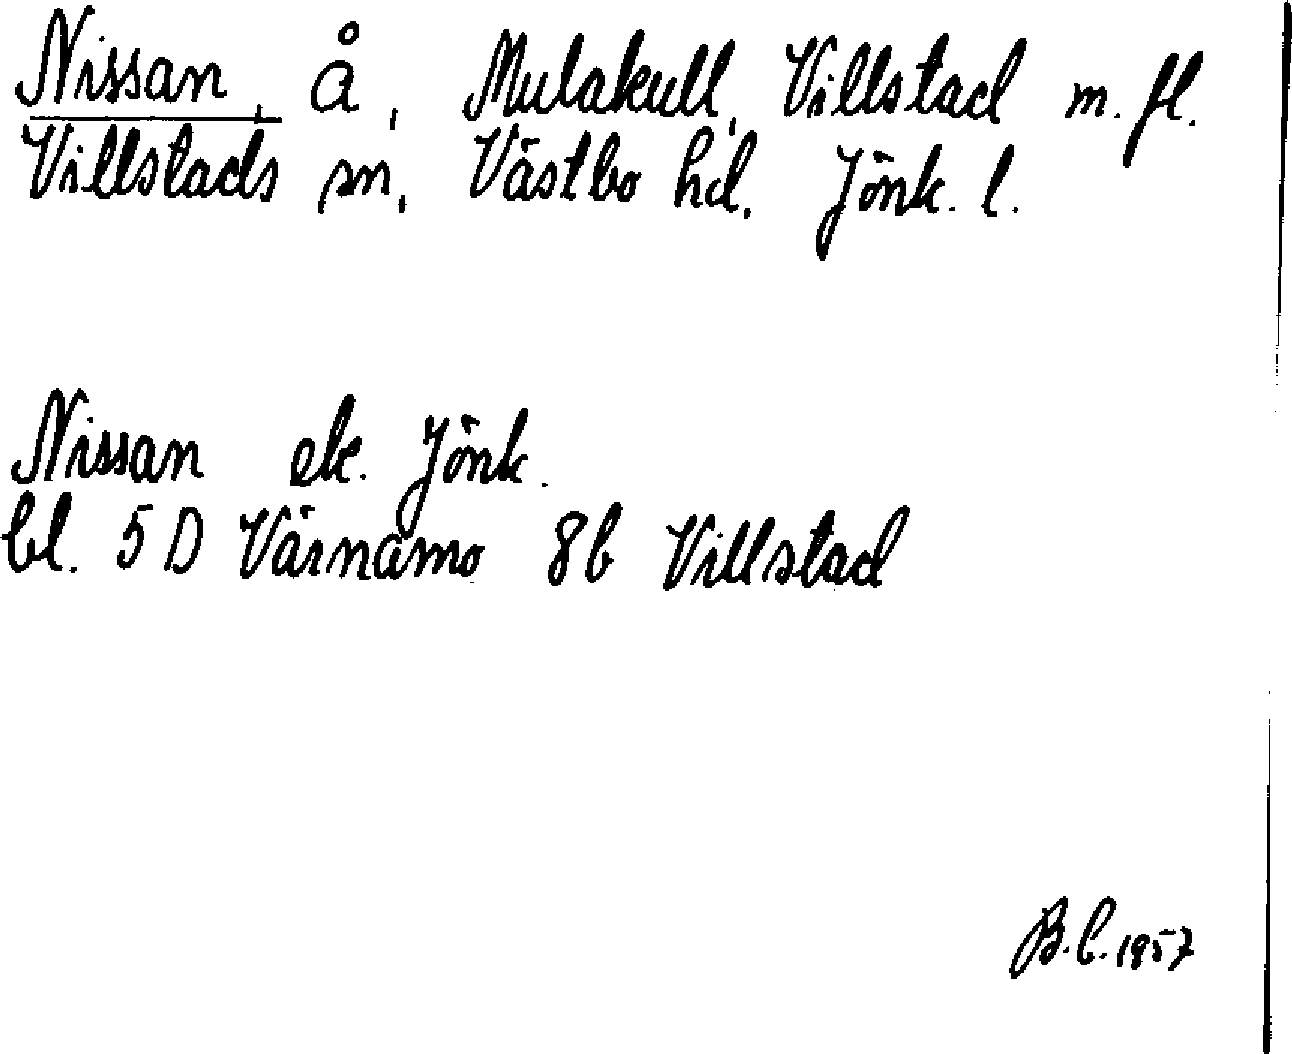 Nissan, å, Mulakull, Villstad m.fl.
Villstads sn, Västbo hd, Jönk. l.
Nissan ek. Jönk.
bl. 5D Värnamo 8b Villstad
B.C. 1957